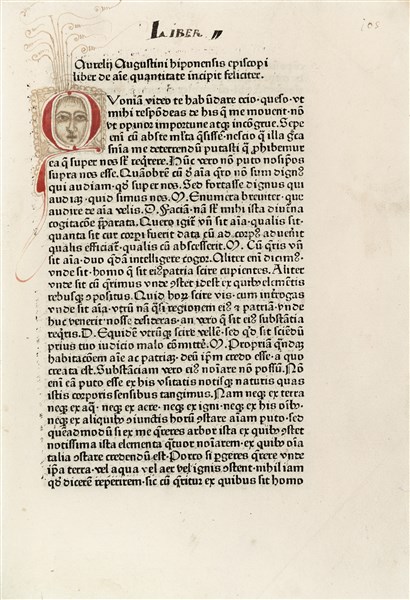 LIBER
Aurelij Augustini hiponensis episcopi
liber de aīe quantitate incipit feliciter.
QVoniā video te habūdare ocio · queso · vt
mihi respōdeas de his q̄ me mouent · nō
vt opinor importune atqȝ incōgrue. Sepe
enī cū abs te m̄ta q̄sissē · nescio q̄ illa gca
snīa me deterrendū putasti q̄ ꝓhibemur
ea q̄ super nos sūt reqr̄ere. Nūc vero nō puto nosipōs
supra nos esse. Quāobrē cū de aīa qro nō sum dign9
qui audiam · qd super nos. Sed fortasse dignus qui
audiaȝ · quid simus nos. M. Enumera breuiter · que
audire de aīa velis. D. Faciā · nā sūt mihi ista diutna
cogitacōe pparata. Quero igit unde sit aīa · qualis sit ·
quanta sit · cur corpi fuerit data · cū ad corpus aduenerit
qualis efficiat · qualis cū abscesserit. M. Cū qris vnde
sit aīa · duo qdā intelligere cogor. Aliter enī dicim9
vnde sit homo · q̄ sit ei9 patria scire cupientes. Aliter
vnde sit cū qrimus vnde ɔstet idest ex quibȝ elemētis
rebusqȝ ɔpositus. Quid horȝ scire vis · cum introgas
vnde sit aīa · vtrū nā q̄si regionem ei9 et patriā · vnde
huc venerit · nosse desideras · an vero q̄ sit ei9 substātia
reqris. D. Equidē vtrūqȝ scire vellē · sed qd sit sciēdū
prius tuo iudicio malo cōmittē. M. Propriā qndaȝ
habitacōem aīe ac patriaȝ · deū ipm credo esse · a quo
creata est. Substāciam vero ei9 noīare nō possū. Nō
enī eā puto esse ex his vsitatis notisqȝ naturis quas
istis corporis sensibus tangimus. Nam neqȝ ex terra
neqȝ ex aq̄ · neqȝ ex aere · neqȝ ex igni · neqȝ ex his oībȝ ·
neqȝ ex aliquibȝ ɔiunctis horū ɔstare aīam puto · sed
queadmodū si ex me qreres arbor ista ex quibȝ ɔstet
notissima ista elementa qtuor noīarem · ex quibȝ oīa
talia ɔstare credendū est. Porro si pgeres qrere vnde
ipa terra · vel aqua · vel aer · vel ignis ɔstent · nihil iam
qd dicerē reperirem · sic cū qritur ex quibus sit homo